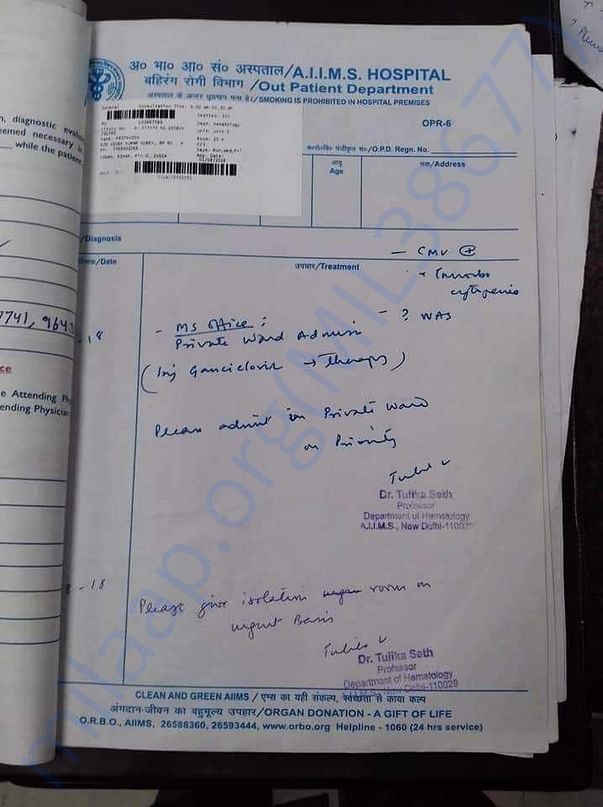 अ० भा० आ० सं० अस्पताल/A.I.I.M.S. HOSPITAL
बहिरंग रोगी विभाग/Out Patient Department
अस्पताल के अन्दर धूम्रपान मना है।/SMOKING IS PROHIBITED IN HOSPITAL PREMISES
OPR-6
General
Dept: Hematology
O.P.D. Regn. No.
आयु
Age
पता/Address
/Diagnosis
/Date
उपचार/Treatment
, diagnostic
emed necessary in
while the patient
7741, 9643
ce
e Attending Ph
ending Physician
- CMV +
- Thrombo
cytopenia
- ? WAS
-18
- MS Office :
Private Ward Admission
(Inj Ganciclovir → therapy)
Please admit in Private Ward
on Priority
Tulika
Dr. Tulika Seth
Professor
Department of Hematology
A.I.I.M.S., New Delhi-110029
8-18
Please give isolation room on
urgent Basis
Tulika
Dr. Tulika Seth
Professor
Department of Hematology
A.I.I.M.S., New Delhi-110029
CLEAN AND GREEN AIIMS / एम्स का यही संकल्प, स्वच्छता से काया कल्प
अंगदान-जीवन का बहुमूल्य उपहार/ORGAN DONATION - A GIFT OF LIFE
O.R.B.O., AIIMS, 26588360, 26593444, www.orbo.org Helpline - 1060 (24 hrs service)
milaap.org(MIL38677)